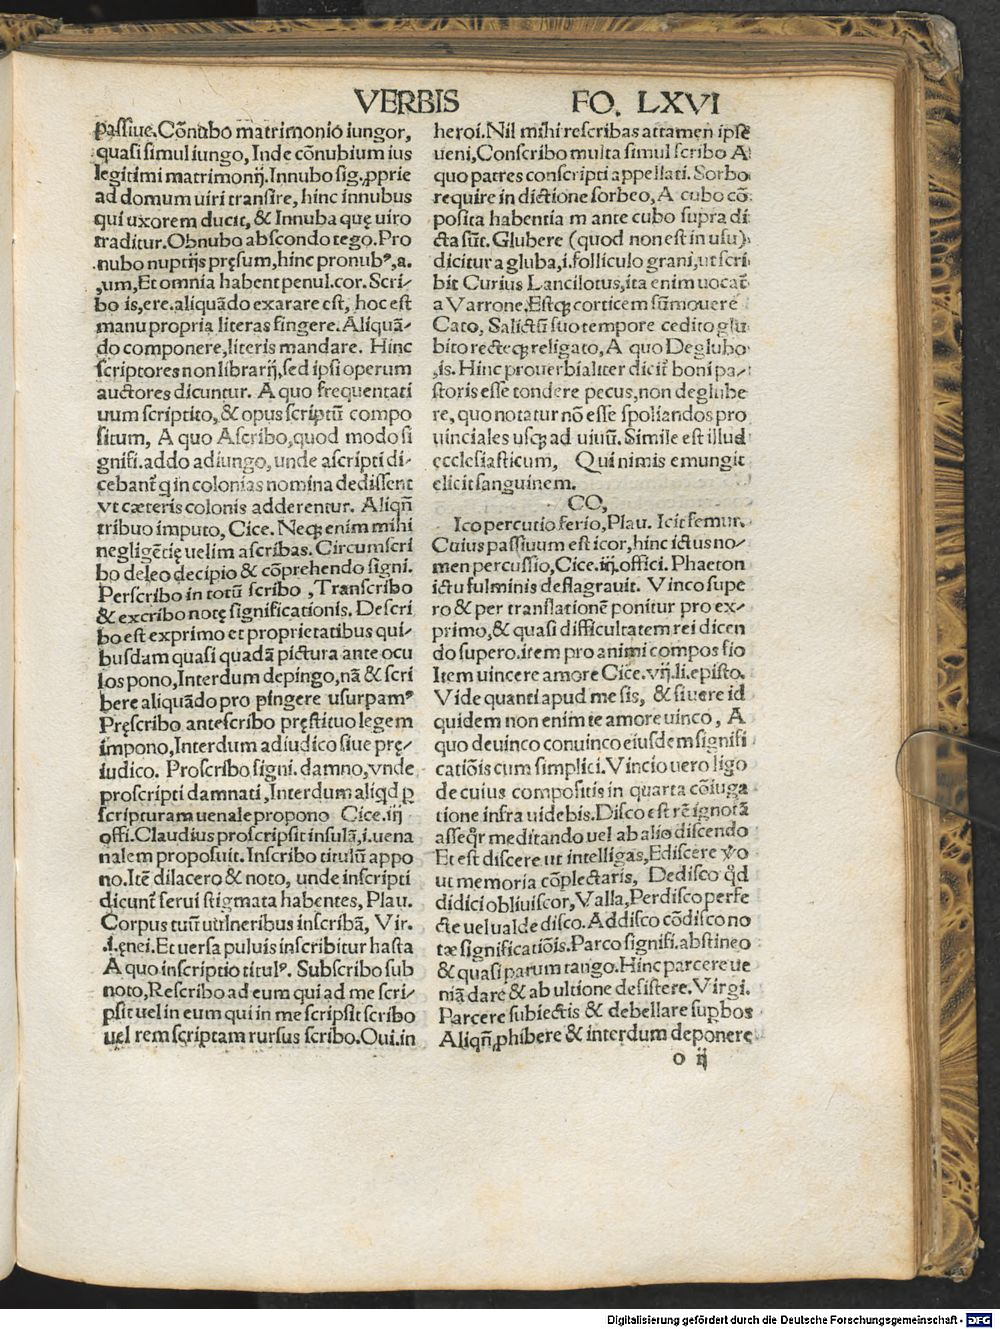 VERBIS FO. LXVI
paſſiue. Cōnubo matrimonio iungor,
quaſi ſimul iungo, Inde cōnubium ius
legitimi matrimonij. Innubo ſig. ꝓprie
ad domum uiri tranſire, hinc innubus
qui uxorem ducit, & Innuba quę uiro
traditur. Obnubo abſcondo tego. Pro
nubo nuptijs pręſum, hinc pronubꝰ, a.
,um, Et omnia habent penul. cor. Scri⸗
bo is, ere. aliquādo exarare eſt, hoc eſt
manu propria literas fingere. Aliquā⸗
do componere, literis mandare. Hinc
ſcriptores non librarij, ſed ipſi operum
auctores dicuntur. A quo frequentati
uum ſcriptito, & opus ſcriptū compo
ſitum, A quo Aſcribo, quod modo ſi
gnifi. addo adiungo, unde aſcripti di⸗
cebant̄ q in colonias nomina dediſſent
vt cæteris colonis adderentur. Aliqn̄
tribuo imputo, Cice. Neqꝫ enim mihi
negligētię uelim aſcribas. Circumſcri
bo deleo decipio & cōprehendo ſigni.
Perſcribo in totū ſcribo , Tranſcribo
& excribo notę ſignificationis. Deſcri
bo eſt exprimo et proprietatibus qui⸗
buſdam quaſi quadā pictura ante ocu
los pono, Interdum depingo, nā & ſcri
bere aliquādo pro pingere uſurpamꝰ
Pręſcribo anteſcribo pręſtituo legem
impono, Interdum adiudico ſiue prę⸗
iudico. Proſcribo ſigni. damno, vnde
proſcripti damnati, Interdum aliqd ꝑ
ſcripturam uenale propono Cice. iij
offi. Claudius proſcripſit inſulā, i. uena
nalem propoſuit. Inſcribo titulū appo
no. Itē dilacero & noto, unde inſcripti
dicunt̄ ſerui ſtigmata habentes, Plau.
Corpus tuū uulneribus inſcribā, Vir.
.i. ęnei. Et uerſa puluis inſcribitur haſta
A quo inſcriptio titulꝰ. Subſcribo ſub
noto, Reſcribo ad eum qui ad me ſcri⸗
pſit uel in eum qui in me ſcripſit ſcribo
uel rem ſcriptam rurſus ſcribo. Oui. in
heroi. Nil mihi reſcribas attamen ipſe
ueni, Conſcribo multa ſimul ſcribo A
quo patres conſcripti appellati. Sorbo
require in dictione ſorbeo, A cubo cō
poſita habentia m ante cubo ſupra di
cta ſūt. Glubere (quod non eſt in uſu)
dicitur a gluba, i. folliculo grani, ut ſcri
bit Curius Lancilotus, ita enim uocat̄
a Varrone. Eſtqꝫ corticem ſūmouere
Cato, Salictū ſuo tempore cedito glu
bito recteqꝫ religato, A quo Deglubo
,is. Hinc prouerbialiter dicit̄ boni pa⸗
ſtoris eſſe tondere pecus, non deglube
re, quo notatur nō eſſe ſpoliandos pro
uinciales uſqꝫ ad uiuū. Simile eſt illud
eccleſiaſticum, Qui nimis emungit
elicit ſanguinem.
CO,
Ico percutio ferio, Plau. Icit femur.
Cuius paſſiuum eſt icor, hinc ictus no⸗
men percuſſio, Cice. iij. offici. Phaeton
ictu fulminis deflagrauit. Vinco ſupe
ro & per tranſlationē ponitur pro ex⸗
primo, & quaſi difficultatem rei dicen
do ſupero. item pro animi compos fio
Item uincere amore Cice. vij. li. epiſto.
Vide quanti apud me ſis, & ſi uere id
quidem non enim te amore uinco, A
quo deuinco conuinco eiuſdem ſignifi
catiōis cum ſimplici. Vincio uero ligo
de cuius compoſitis in quarta cōiuga
tione infra uidebis. Diſco eſt rē ignotā
aſſeqr̄ meditando uel ab alio diſcendo
Et eſt diſcere ut intelligas, Ediſcere v̄o
ut memoria cōplectaris, Dediſco qd̄
didici obliuiſcor, Valla, Perdiſco perfe
cte uel ualde diſco. Addiſco cōdiſco no
tæ ſignificatiōis. Parco ſignifi. abſtineo
& quaſi parum tango. Hinc parcere ue
niā dare & ab ultione deſiſtere. Virgi.
Parcere ſubiectis & debellare ſupbos
Aliqn̄ ꝓhibere & interdum deponere
o ij
Digitalisierung gefördert durch die Deutsche Forschungsgemeinschaft - DFG